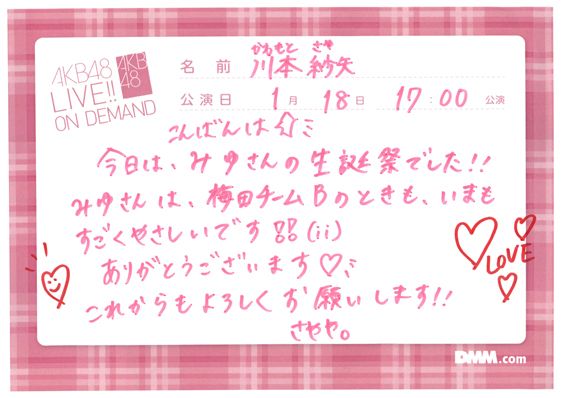 AKB48
LIVE!!
ON DEMAND
AKB
48
かわもと さや
名前 川本 紗矢
公演日 1月 18日 17:00 公演
こんばんは☆ミ
今日は、みゆさんの生誕祭でした!!
みゆさんは、梅田チームBのときも、いまも
すごくやさしいです (ii)
ありがとうございます♡ミ
これからもよろしくお願いします!!
さやや。
LOVE
DMM.com